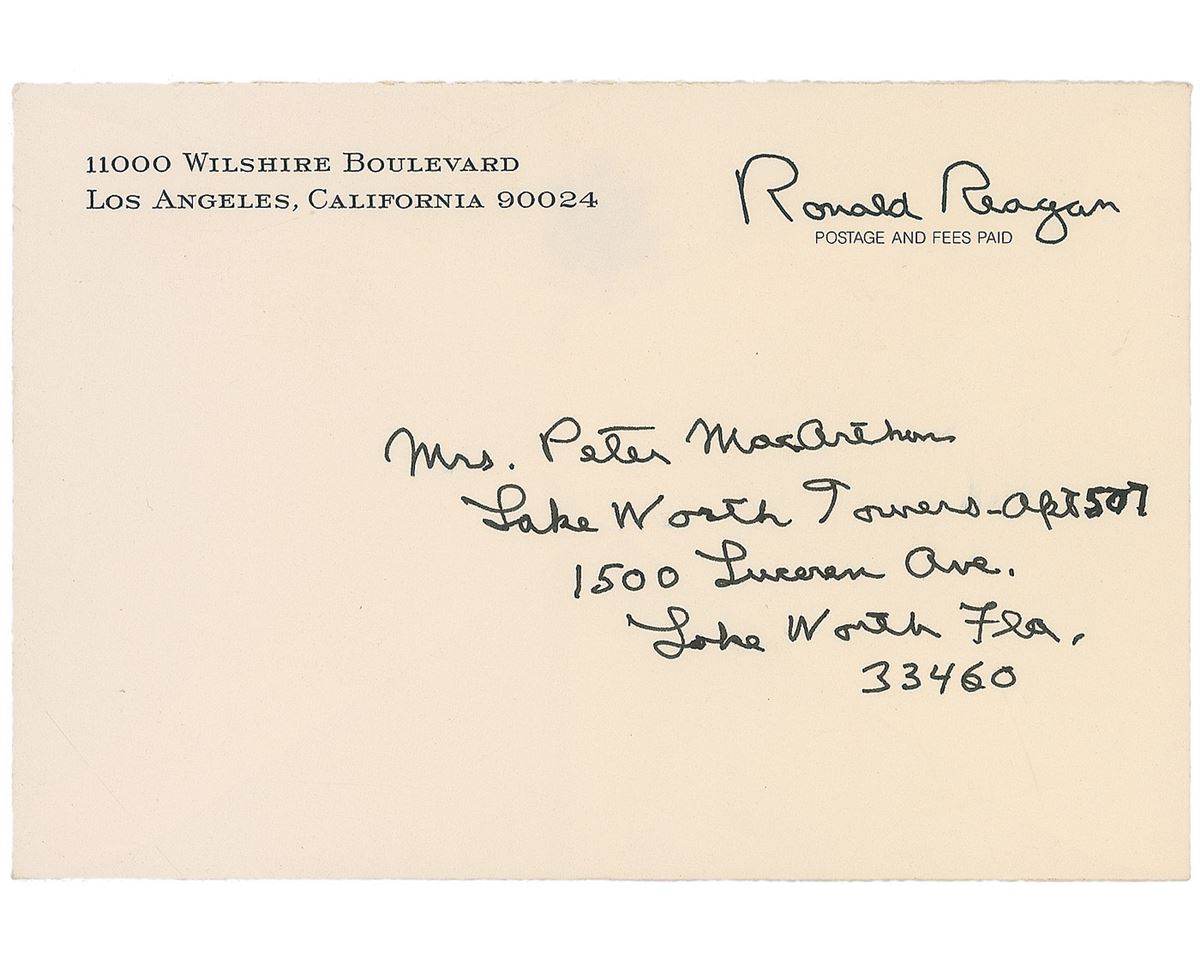 11000 WILSHIRE BOULEVARD
LOS ANGELES, CALIFORNIA 90024
Ronald Reagan
POSTAGE AND FEES PAID
Mrs. Peter MacArthur
Lake Worth Towers-Apt 507
1500 Luceren Ave.
Lake Worth Fla.
33460